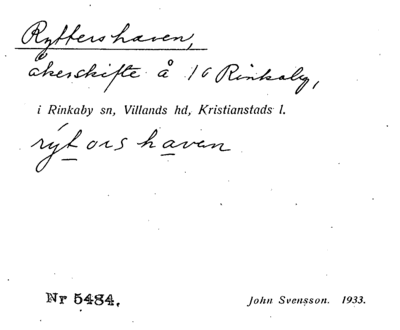 Ryttershaven,
åkerskifte å 16 Rinkaby,
i Rinkaby sn, Villands hd, Kristianstads l.
rýt ors havan
Nr 5484. John Svensson. 1933.